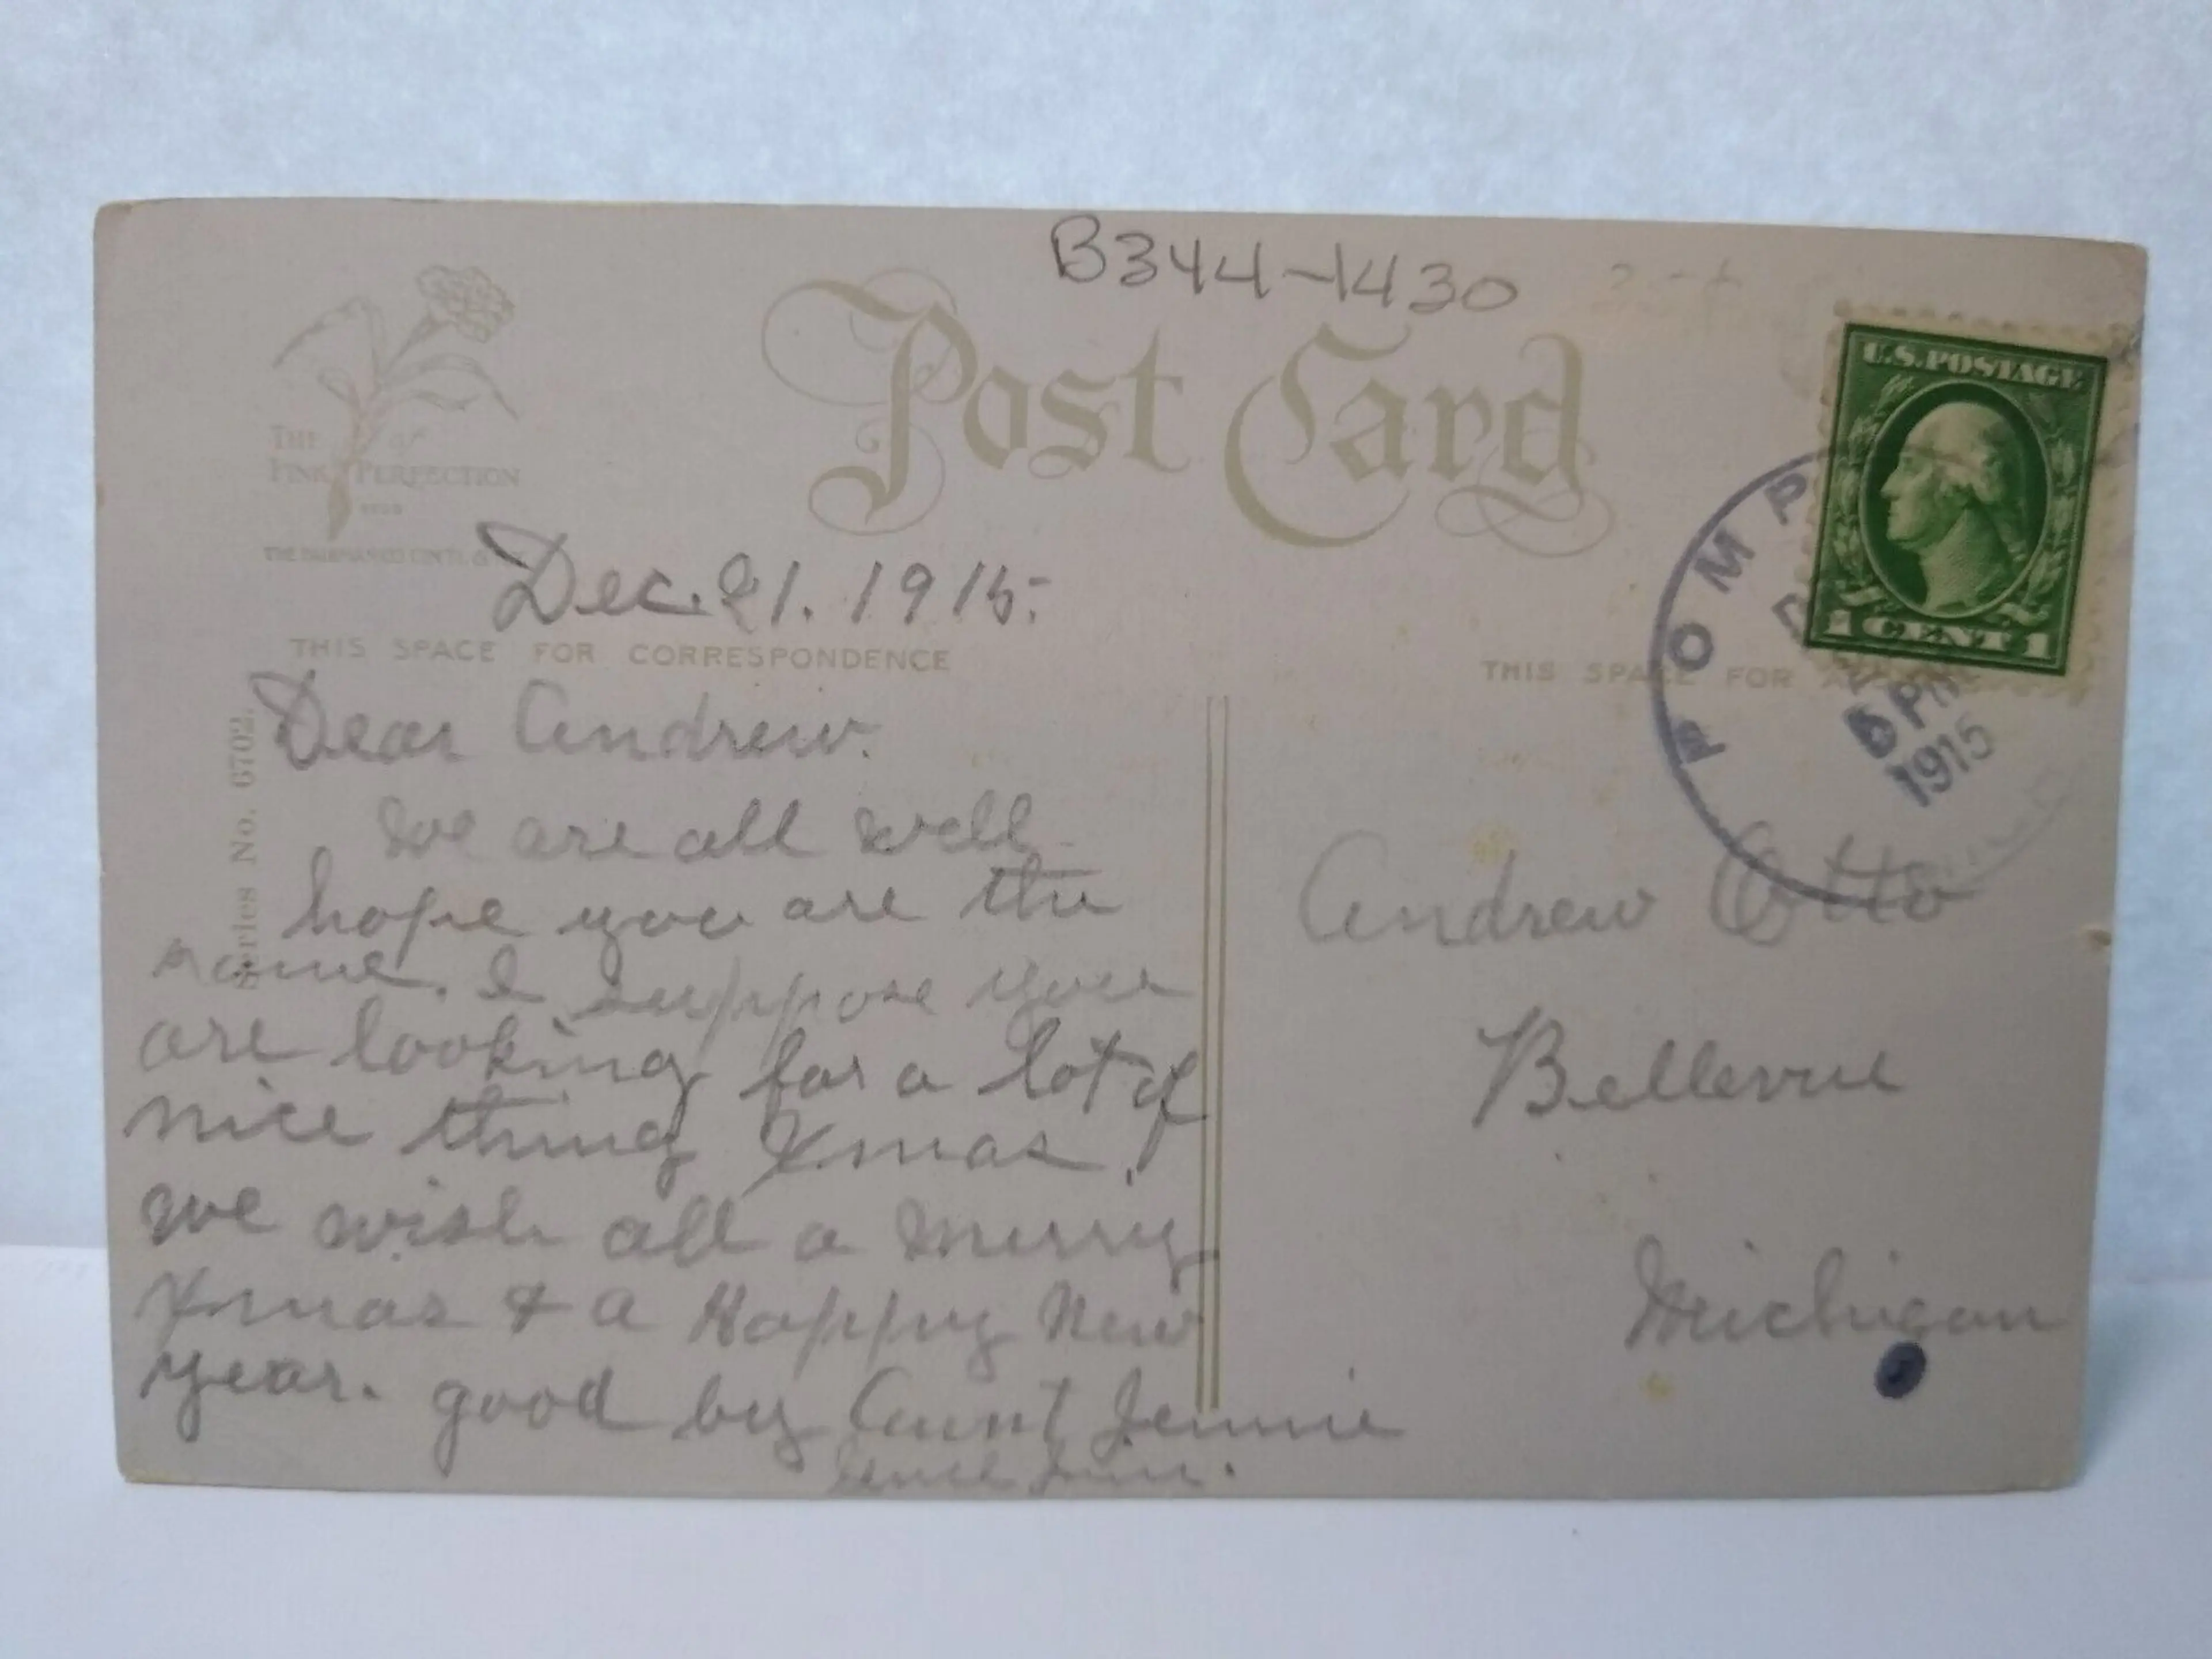 B344-1430
Post Card
THE of
PINK PERFECTION
Dec. 21. 1915.
THIS SPACE FOR CORRESPONDENCE
THIS SPACE FOR
U.S. POSTAGE
1 CENT 1
POMP
5 PM
1915
Series No. 6702.
Dear Andrew.
We are all well
hope you are the
same. I suppose you
are looking for a lot of
nice thing Xmas.
We wish all a merry
Xmas & a Happy New
Year. good by Aunt Jennie
Andrew Otto
Bellevue
Michigan